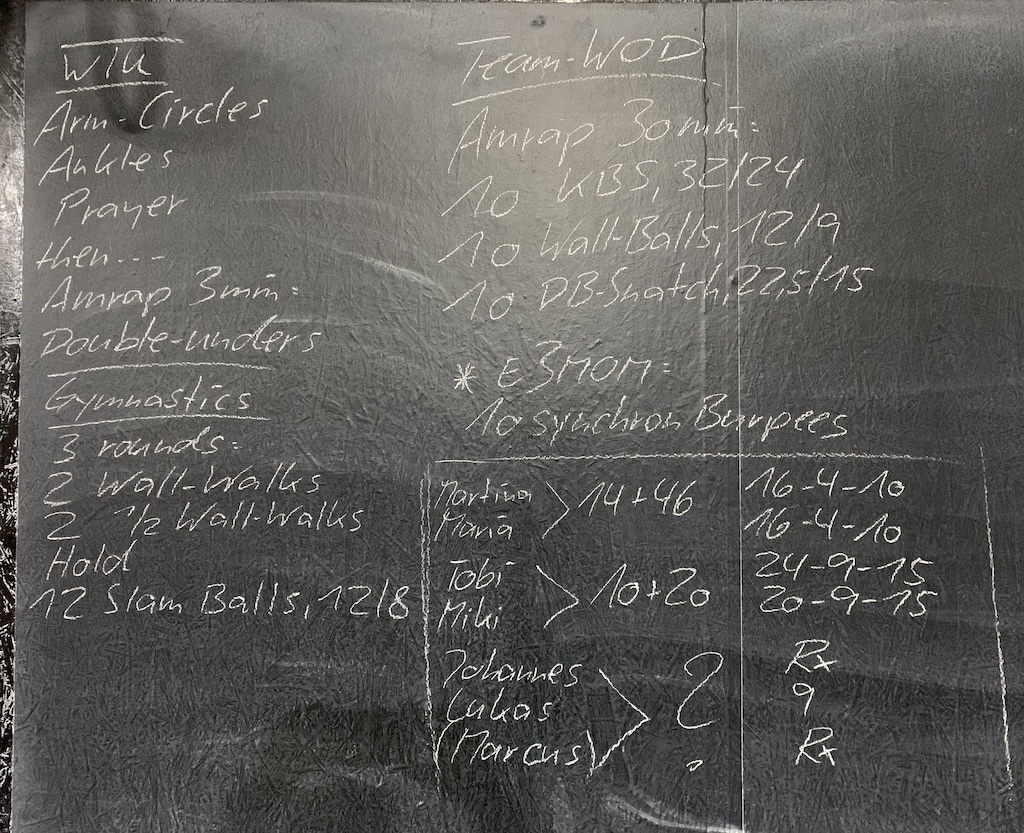 WTU
Arm-Circles
Ankles
Prayer
then---
Amrap 3min:
Double-unders
Gymnastics
3 rounds:
2 Wall-Walks
2 1/2 Wall-Walks
Hold
12 Slam Balls, 12/8
Team-WOD
Amrap 30min:
10 KBS, 32/24
10 Wall-Balls, 12/9
10 DB-Snatch, 22,5/15
* E3MOM:
10 synchron Burpees
Martina 16-4-10
Maria > 14+46 16-4-10
Tobi 24-9-15
Miki > 10+20 20-9-15
Johannes Rx
Lukas > ? 9
(Marcus) Rx